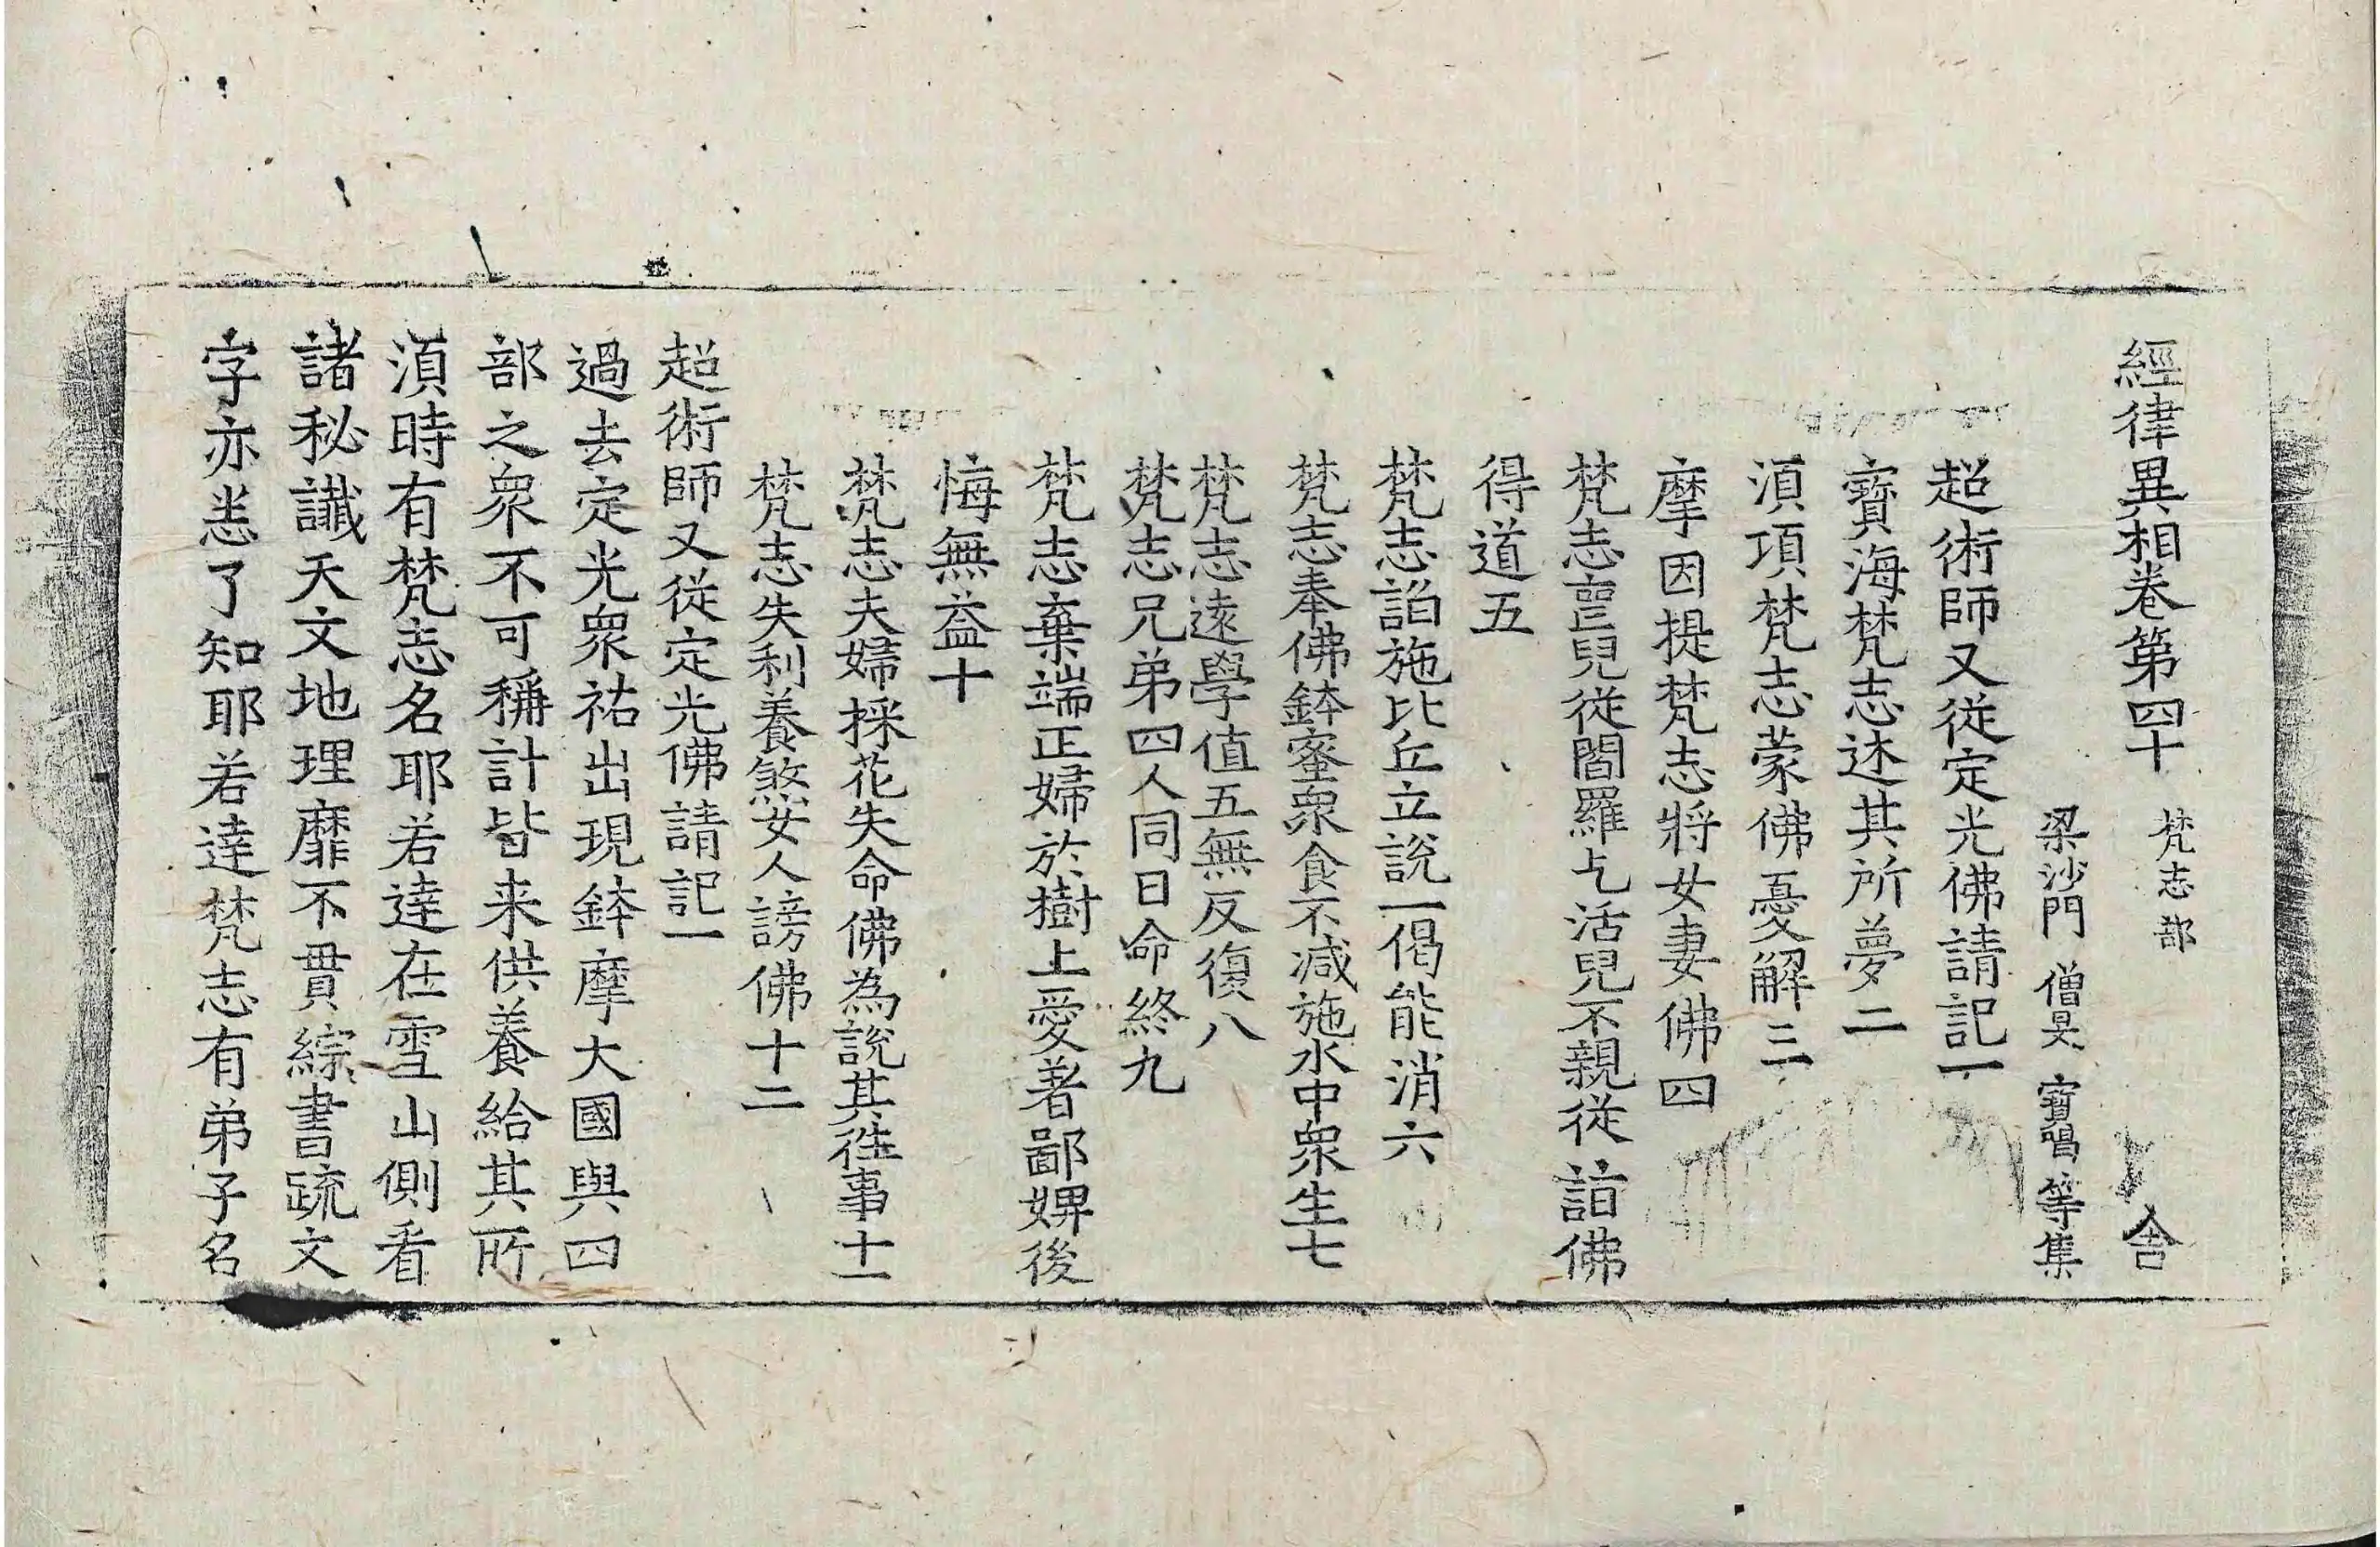 經律異相卷第四十 梵志部 舍
梁沙門 僧旻 寶唱 等集
超術師又從定光佛請記一
寶海梵志述其所夢二
湏項梵志蒙佛憂解三
摩因提梵志將女妻佛四
梵志喪兒從閻羅乞活兒不親從詣佛
得道五
梵志諂施比丘立說一偈能消六
梵志奉佛鉢蜜衆食不減施水中衆生七
梵志遠學值五無反復八
梵志兄弟四人同日命終九
梵志棄端正婦於樹上愛著鄙婢後
悔無益十
梵志夫婦採花失命佛為說其徃事十一
梵志失利養煞女人謗佛十二
超術師又從定光佛請記一
過去定光衆祐出現鉢摩大國與四
部之衆不可稱計皆来供養給其所
湏時有梵志名耶若達在雪山側看
諸秘讖天文地理靡不貫綜書疏文
字亦悉了知耶若達梵志有弟子名